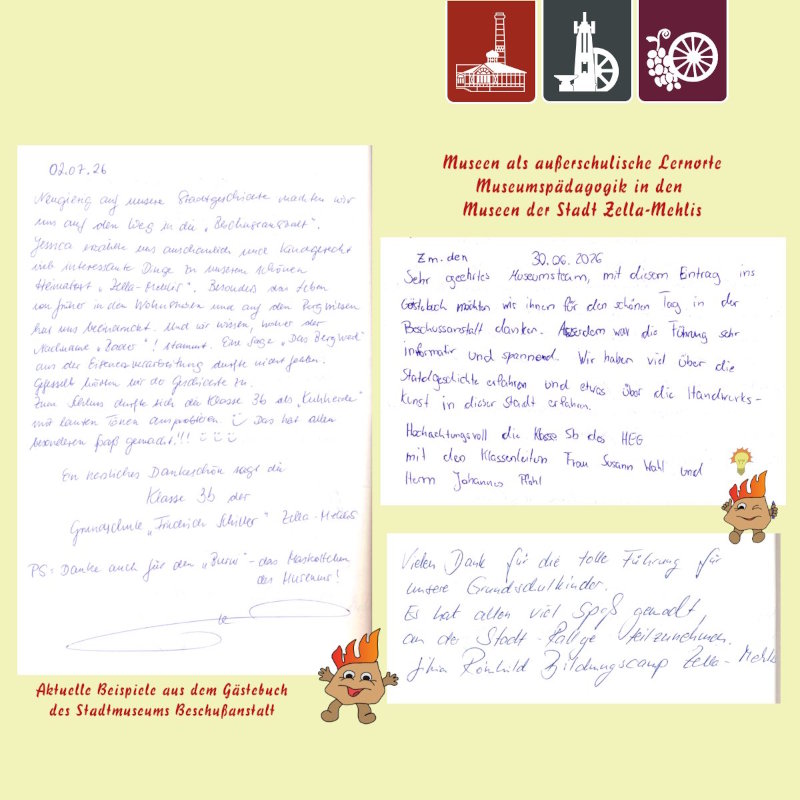 Museen als außerschulische Lernorte
Museumspädagogik in den
Museen der Stadt Zella-Mehlis
02.07.26
Neugierig auf unsere Stadtgeschichte machten wir
uns auf den Weg in die „Beschussanstalt“.
Jessica erzählte uns anschaulich und kindgerecht
viele interessante Dinge zu unserem schönen
Heimatort „Zella-Mehlis“. Besonders das Leben
von früher in den Wohnhäusern und auf den Bergwiesen
hat uns beeindruckt. Und wir wissen, woher der
Nachname „Zader“ stammt. Eine Sage „Das Bergwerk“
aus der Eisenverarbeitung durfte nicht fehlen.
Gefesselt hörten wir der Geschichte zu.
Zum Schluss durfte sich die Klasse 3b als „Kuhherde“
mit lauten Tönen ausprobieren. Das hat allen
besonderen Spaß gemacht!!!
Ein herzliches Dankeschön sagt die
Klasse 3b der
Grundschule „Friedrich Schiller“ Zella-Mehlis
PS: Danke auch für den - das Maskottchen
des Museums!
Aktuelle Beispiele aus dem Gästebuch
des Stadtmuseums Beschußanstalt
Z.m. den 30.06.2026
Sehr geehrtes Museumsteam, mit diesem Eintrag ins
Gästebuch möchten wir ihnen für den schönen Tag in der
Beschussanstalt danken. Ausserdem war die Führung sehr
informativ und spannend. Wir haben viel über die
Stadtgeschichte erfahren und etwas über die Handwerks-
kunst in dieser Stadt erfahren.
Hochachtungsvoll die Klasse 5b des HEG
mit den Klassenleitern Frau Susann Wahl und
Herrn Johannes
Vielen Dank für die tolle Führung für
unsere Grundschulkinder.
Es hat allen viel Spaß gemacht
an der Stadt-Rallye teilzunehmen.
Reinhild Bildungscamp Zella-Mehlis